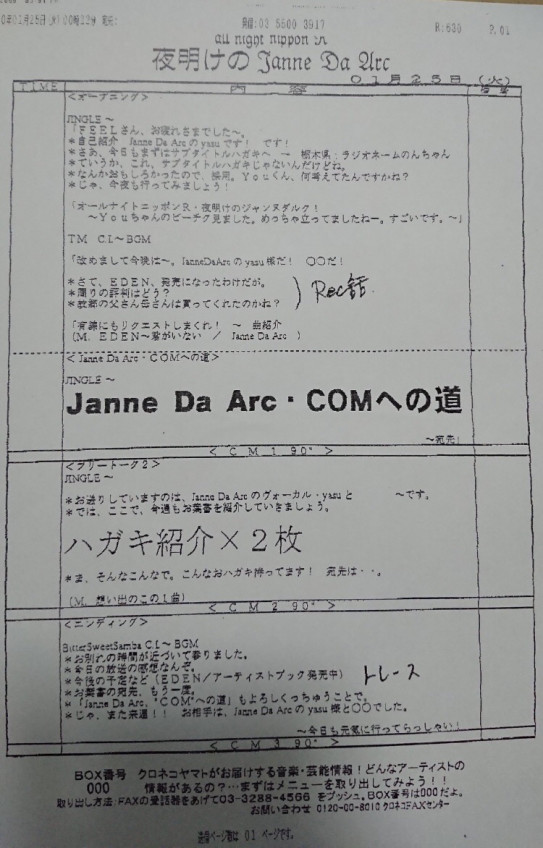 0年01月25日(火)00時12分 宛先:
発信:03 5500 3917
R:630
P.01
all night nippon R
夜明けの Janne Da Arc
01月25日(火)
TIME
内容
<オープニング>
JINGLE～
「FEELさん、お疲れさまでした～。
*自己紹介 Janne Da Arcのyasuです! です!
*さあ、今日もまずはサブタイトルハガキへ → 栃木県:ラジオネームのんちゃん
*ていうか、これ、サブタイトルハガキじゃないんだけどね。
*なんかおもしろかったので、採用。Youくん、何考えてんですかね?
*じゃ、今夜も行ってみましょう!
「オールナイトニッポンR・夜明けのジャンヌダルク!
～Youちゃんのビーチク見ました。めっちゃ立ってましたねー。すごいです。～」
TM C.I.～BGM
「改めまして今晩は～。JanneDaArcのyasu様だ! ○○だ!
*さて、EDEN、発売になったわけだが。
*周りの評判はどう?
*故郷の父さん母さんは買ってくれたのかね?
Rec話
「有線にもリクエストしまくれ! ～ 曲紹介
(M. EDEN～君がいない / Janne Da Arc )
<Janne Da Arc・COMへの道>
JINGLE～
Janne Da Arc・COMへの道
～宛先!
<CM1 90">
<フリートーク2>
JINGLE～
*お送りしていますのは、Janne Da Arcのヴォーカル・yasuと ～です。
*では、ここで、今週もお葉書を紹介していきましょう。
ハガキ紹介×2枚
*ま、そんなこんなで。こんなおハガキ待ってます! 宛先は・・。
(M. 想い出のこの1曲)
<CM2 90">
<エンディング>
BitterSweetSamba C.I.～BGM
*お別れの時間が近づいて参りました。
*今日の放送の感想なんぞ。
*今後の予定など(EDEN/アーティストブック発売中)
トレース
*お葉書の宛先、もう一度。
*「Janne Da Arc、"COM"への道」もよろしくっちゅうことで。
*じゃ、また来週!! お相手は、Janne Da Arcのyasu様と○○でした。
～今日も元気に行ってらっしゃい!
<CM3 90">
BOX番号 クロネコヤマトがお届けする音楽・芸能情報!どんなアーティストの
000 情報があるの?…まずはメニューを取り出してみよう!!
取り出し方法:FAXの受話器をあげて03-3288-4566 をプッシュ。BOX番号は000だよ。
お問い合わせ 0120-00-8010 クロネコFAXセンター
送信ページ数は 01 ページです。